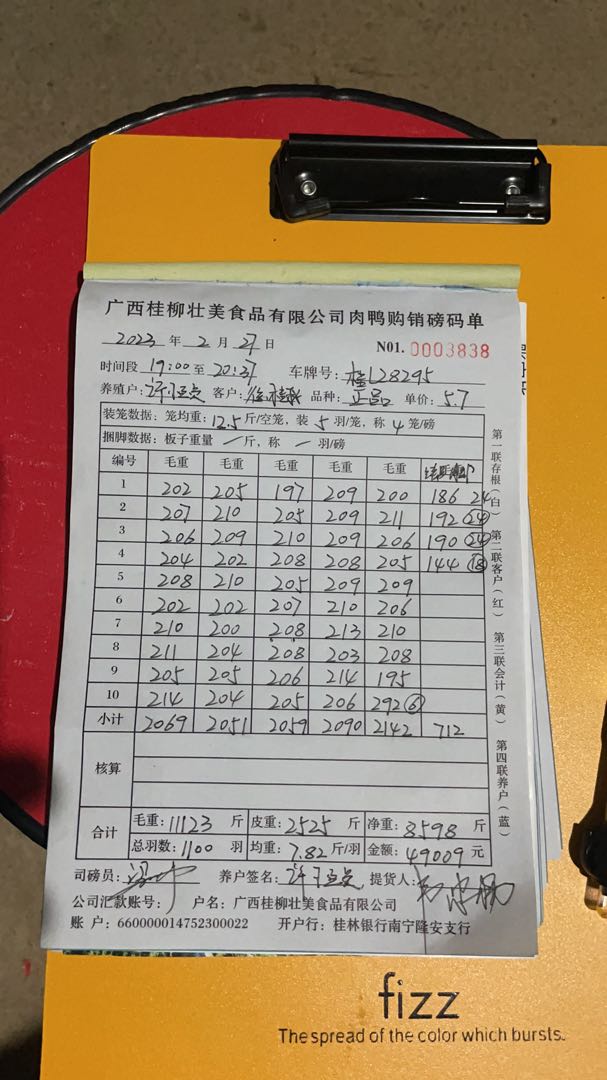 广西桂柳壮美食品有限公司肉鸭购销磅码单
2023 年 2 月 27 日 N01. 0003838
时间段 19:00 至 20:37 车牌号: 桂L28295
养殖户: 客户: 品种: 正品 单价: 5.7
装笼数据: 笼均重: 12.5 斤/空笼, 装 5 羽/笼, 称 4 笼/磅
捆脚数据: 板子重量 — 斤, 称 — 羽/磅
编号 毛重 毛重 毛重 毛重 毛重
1 202 205 197 209 200 186 24
2 207 210 205 209 211 192 (24)
3 206 209 210 209 206 190 (24)
4 204 202 208 208 205 144 (18)
5 208 210 205 209 209
6 202 202 207 210 206
7 210 200 208 213 210
8 211 204 208 203 208
9 205 205 206 214 195
10 214 204 205 206 292 (6)
小计 2069 2051 2059 2090 2142 712
核算
合计 毛重: 11123 斤 皮重: 2525 斤 净重: 8598 斤
总羽数: 1100 羽 均重: 7.82 斤/羽 金额: 49009 元
司磅员: 养户签名: 提货人:
公司汇款账号: 户名: 广西桂柳壮美食品有限公司
账 户: 660000014752300022 开户行: 桂林银行南宁隆安支行
第一联存根(白) 第二联客户(红) 第三联会计(黄) 第四联养户(蓝)
fizz
The spread of the color which bursts.